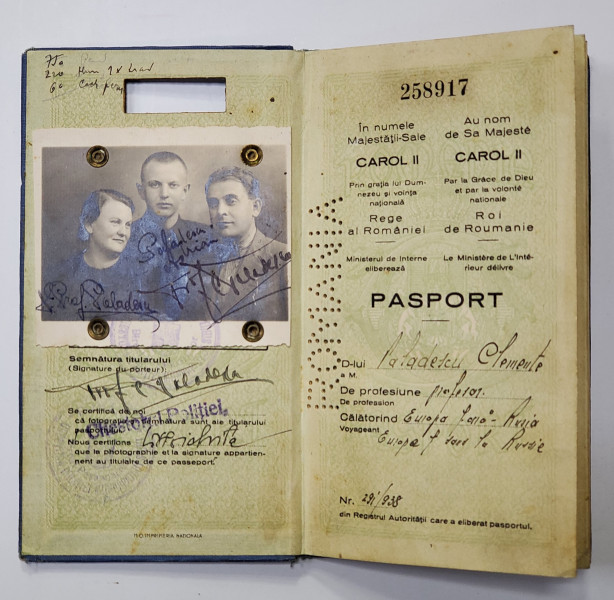 750
220
60
Paladescu
Prof. Paladescu
Semnătura titularului
(Signature du porteur)
Se certifică de noi
că fotografia și semnătura sunt ale titularului
pașaportului.
Chestorul Poliției,
Nous certifions
que la photographie et la signature appartien-
nent au titulaire de ce passeport.
IMPRIMERIA NAȚIONALĂ
258917
În numele
Majestății-Sale
CAROL II
Prin grația lui Dum-
nezeu și voința
națională
Rege
al României
Ministerul de Interne
eliberează
Au nom
de Sa Majesté
CAROL II
Par la Grâce de Dieu
et par la volonté
nationale
Roi
de Roumanie
Le Ministère de L'Inté-
rieur délivre
ROMANIA
PASPORT
D-lui Paladescu Clemente
a M.
De profesiune profesor
De profession
Călătorind Europa fără Rusia
Voyageant Europe sauf la Russie
Nr. 291/938
din Registrul Autorității care a eliberat pașportul.